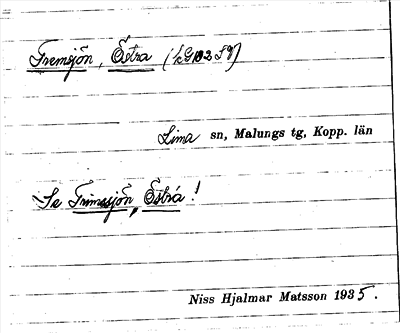 Tremsjön, Östra
Lima sn, Malungs tg, Kopp. län
Se Trimssjön, Östra!
Niss Hjalmar Matsson 1935.